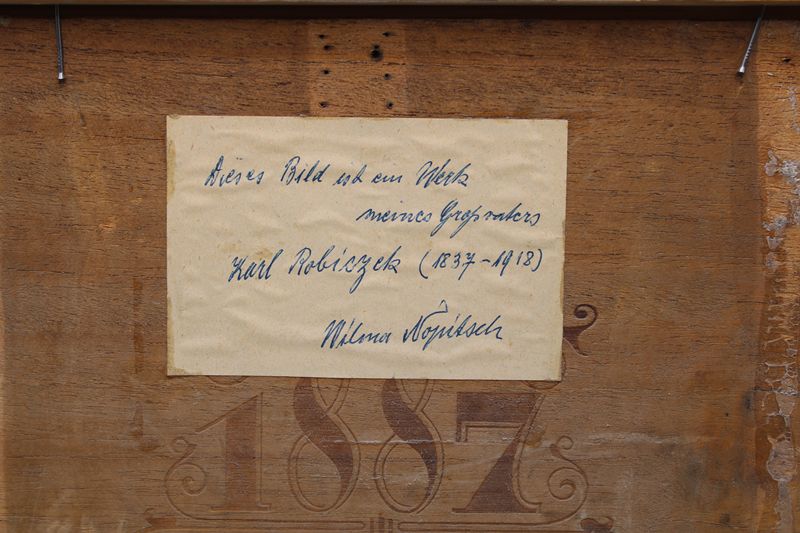 Dieses Bild ist ein Werk
meines Großvaters
Karl Robiczek (1837-1918)
Wilma Nópitsch
1887